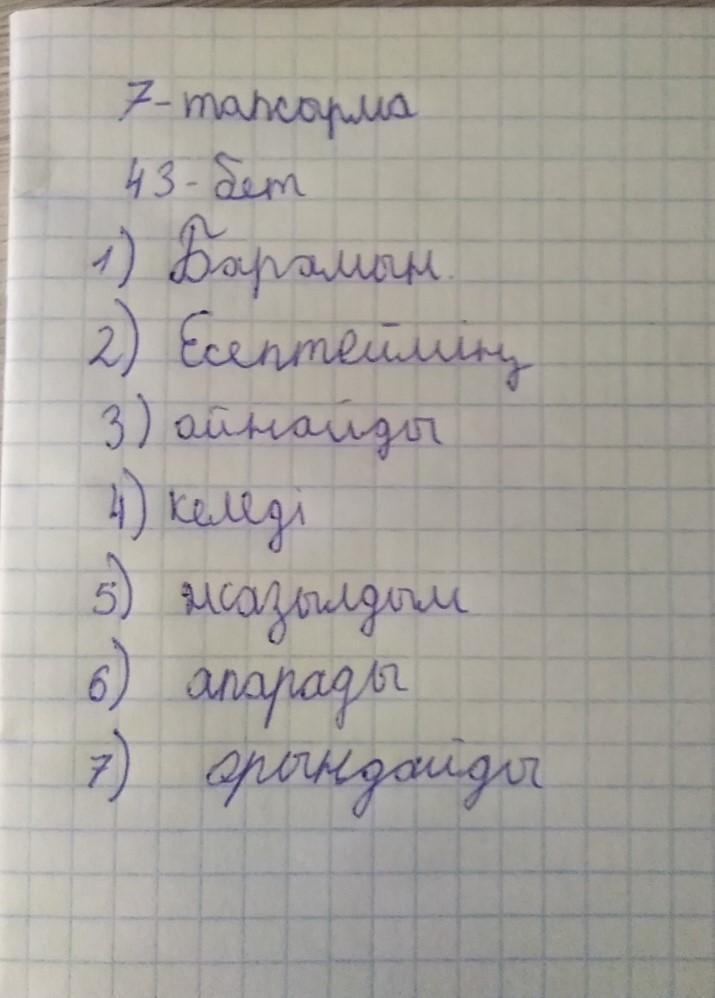 7-тапсырма
43-бет
1) Барамын.
2) Есептейміңң
3) ойнайды
4) келеді
5) жазылдым
6) апарады
7) орындайды